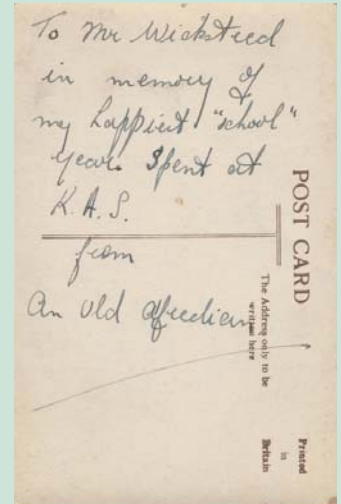 To Mr Wicksteed
in memory of
my happiest "school"
years spent at
K. A. S.
from
An Old Afredian
POST CARD
The Address only to be
written here
Printed
in
Britain